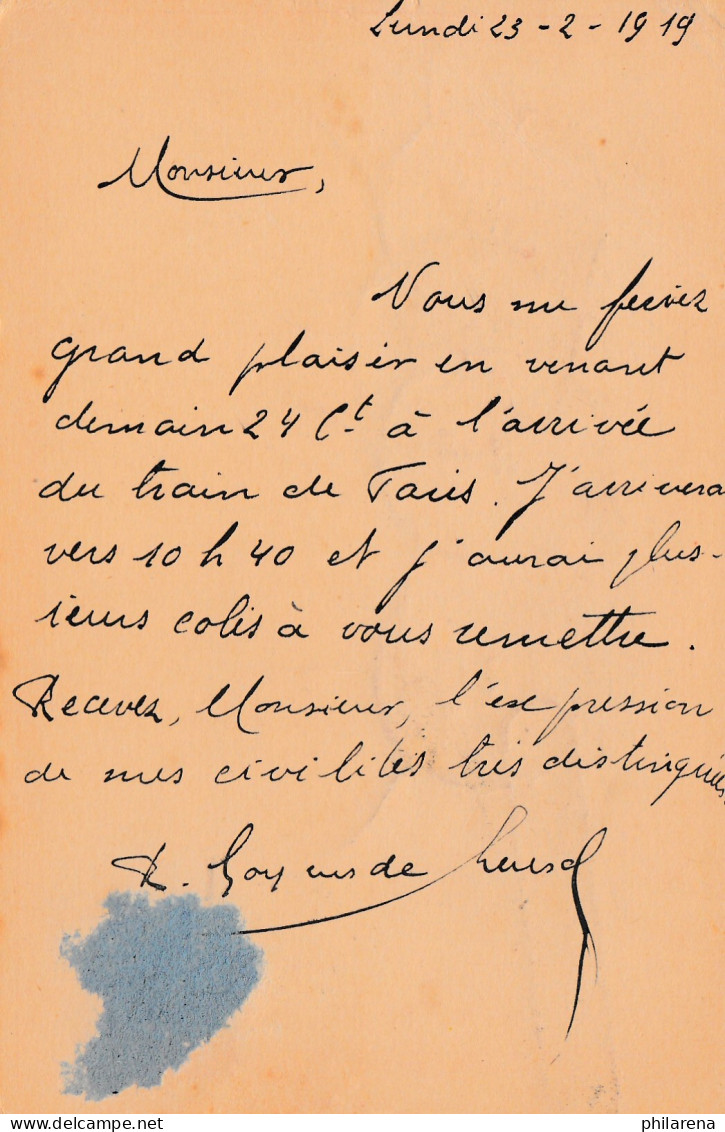 Lundi 23-2-1919
Monsieur,
Vous me feriez
grand plaisir en venant
demain 24 Ct à l'arrivée
du train de Paris. J'arriverai
vers 10 h 40 et j'aurai plus-
ieurs colis à vous remettre.
Recevez, Monsieur, l'expression
de mes civilités très distinguées.
R. de
delcampe.net
philarena